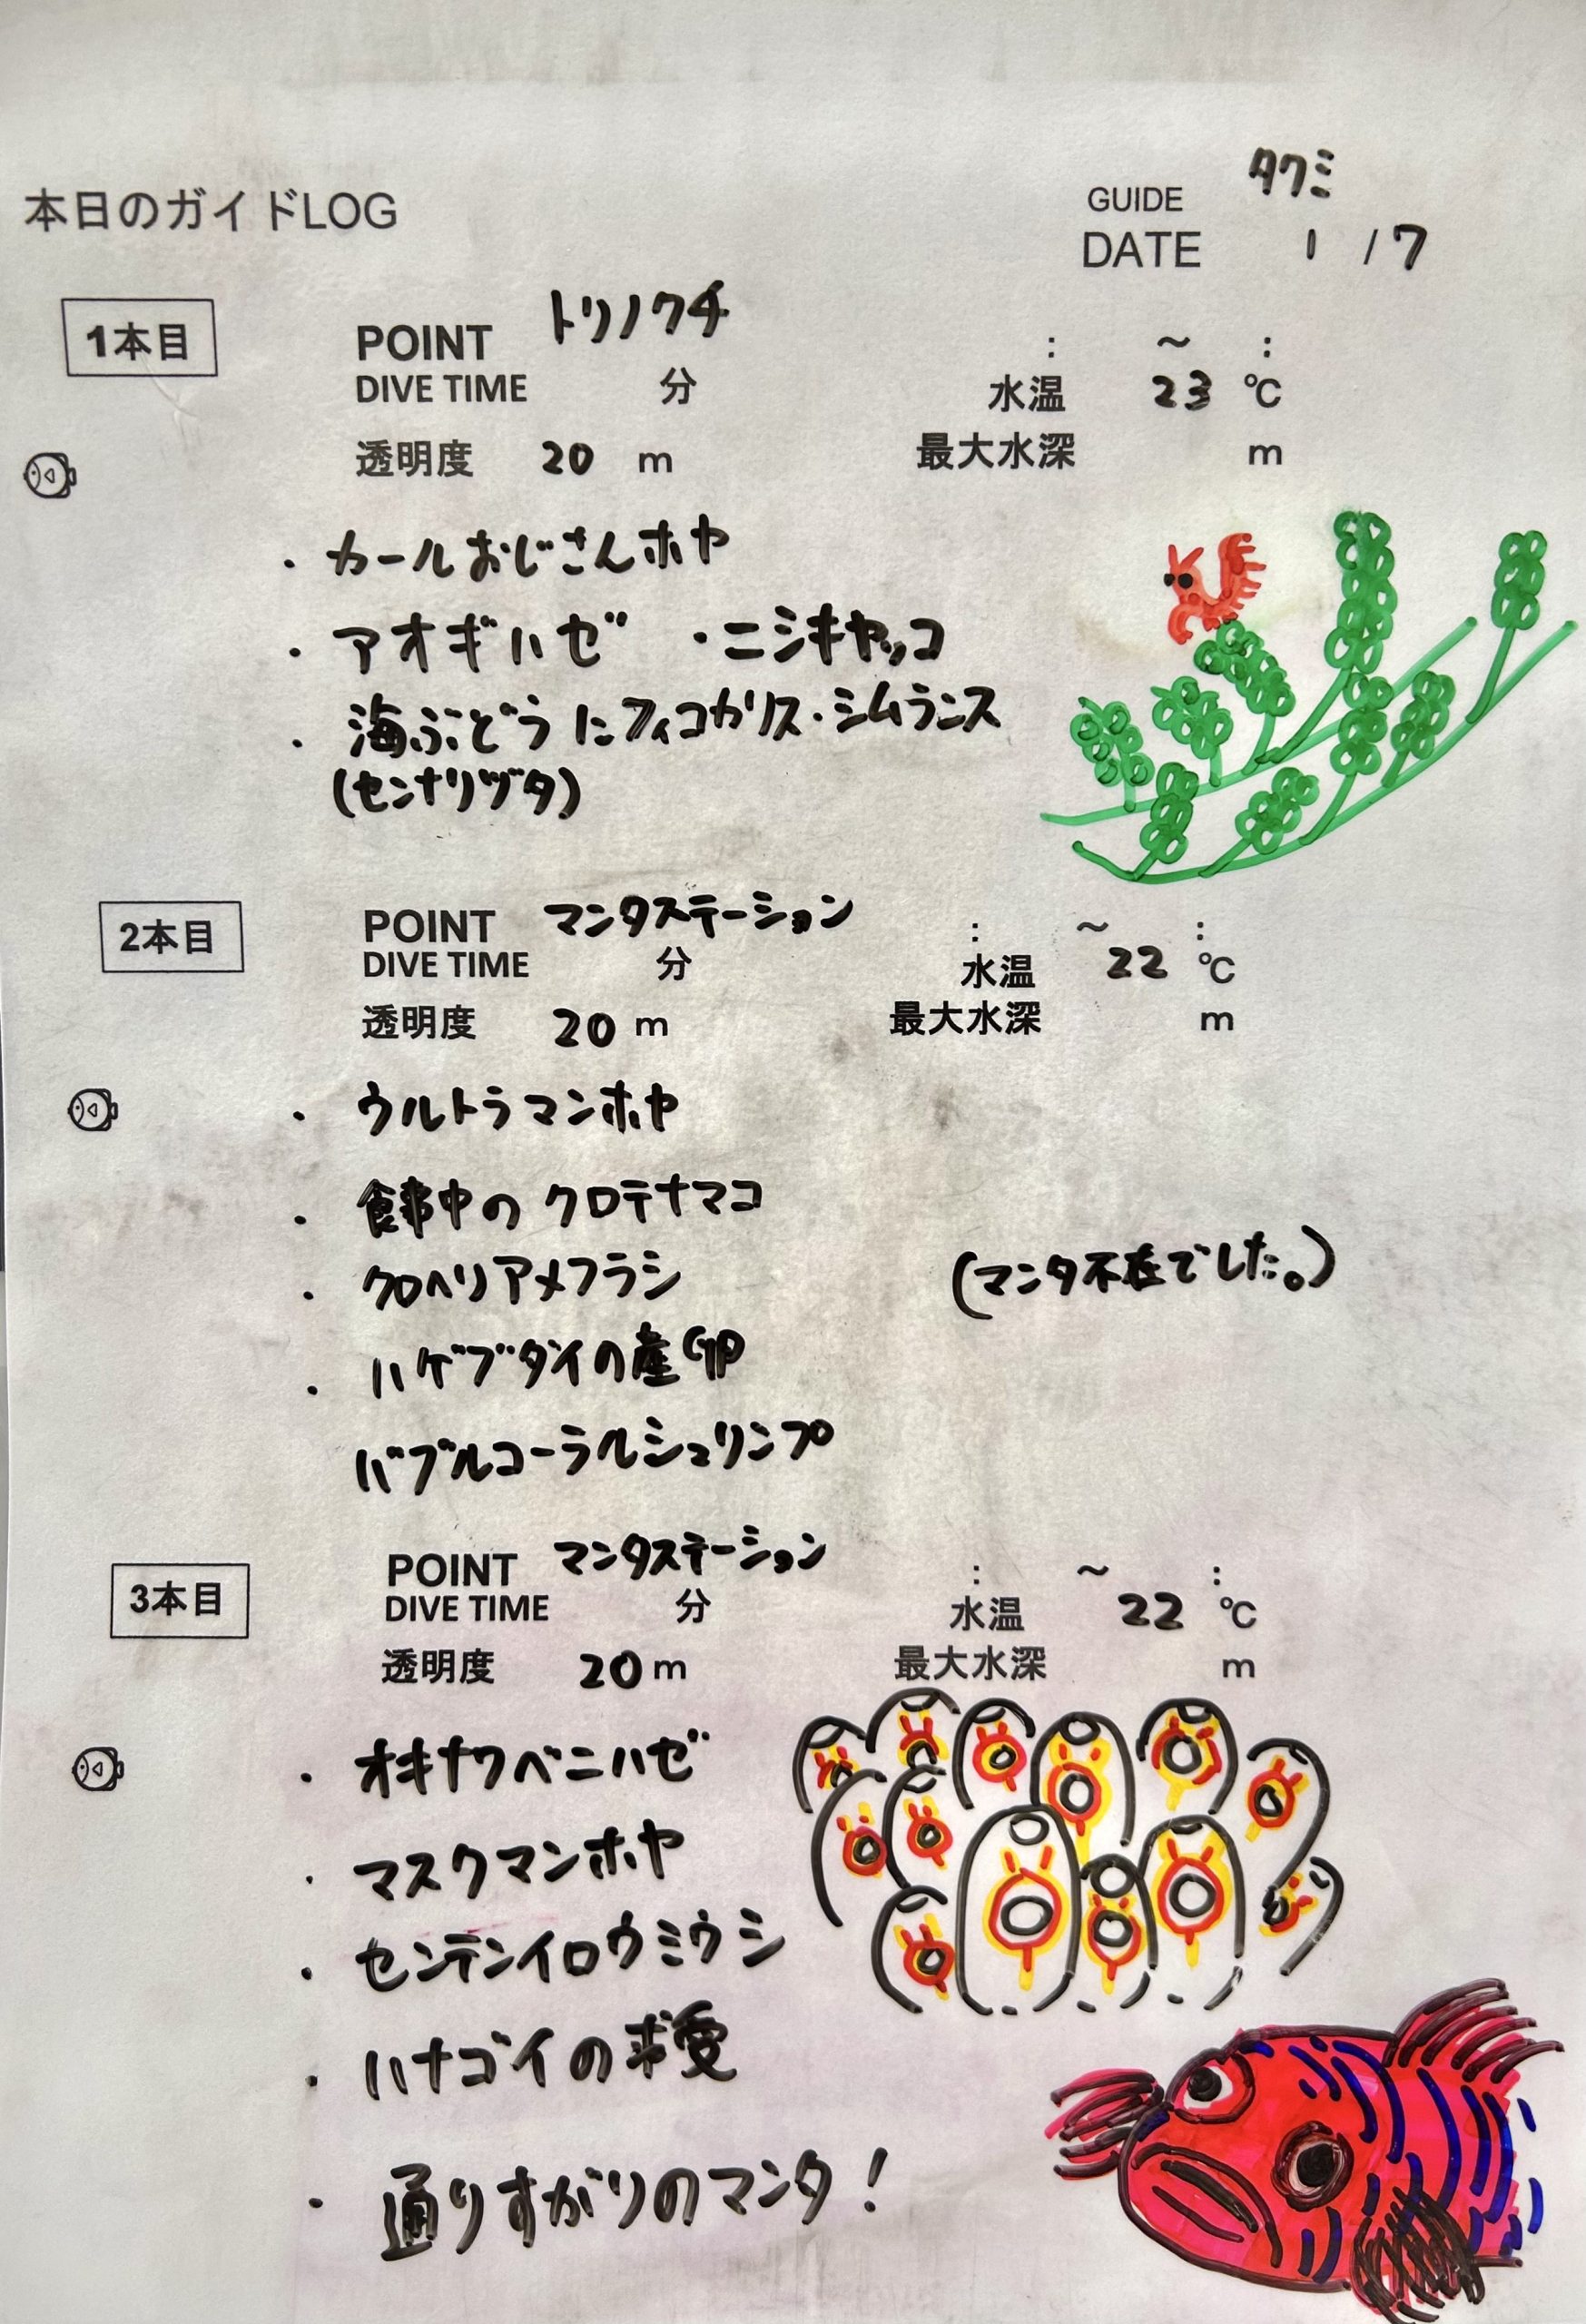 本日のガイドLOG
GUIDE タクミ
DATE 1 / 7
1本目
POINT トリノクチ : ~ :
DIVE TIME 分 水温 23 ℃
透明度 20 m 最大水深 m
・カールおじさんホヤ
・アオギハゼ ・ニシキヤッコ
・海ぶどうにフィコカリス・シムランス
(センナリヅタ)
2本目
POINT マンタステーション : ~ :
DIVE TIME 分 水温 22 ℃
透明度 20 m 最大水深 m
・ウルトラマンホヤ
・食事中の クロテナマコ
・クロヘリアメフラシ (マンタ不在でした。)
・ハゲブダイの産卵
バブルコーラルシュリンプ
3本目
POINT マンタステーション : ~ :
DIVE TIME 分 水温 22 ℃
透明度 20 m 最大水深 m
・オキナワベニハゼ
・マスクマンホヤ
・センテンイロウミウシ
・ハナゴイの求愛
・通りすがりのマンタ!